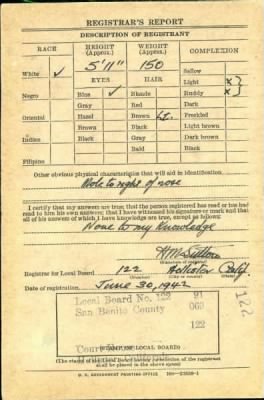 REGISTRAR'S REPORT
DESCRIPTION OF REGISTRANT
RACE HEIGHT (Approx.) WEIGHT (Approx.) COMPLEXION
White ✓ 5'11" 150 Sallow
EYES HAIR Light x
Negro Blue ✓ Blonde Ruddy x
Gray Red Dark
Oriental Hazel Brown Lt. Freckled
Brown Black Light brown
Indian Black Gray Dark brown
Bald Black
Filipino
Other obvious physical characteristics that will aid in identification
Mole to right of nose
I certify that my answers are true; that the person registered has read or has had
read to him his own answers; that I have witnessed his signature or mark and that all
of his answers of which I have knowledge are true, except as follows:
None to my Knowledge
(Signature of registrar)
Registrar for Local Board 122 Hollister Calif.
(Number) (City or county) (State)
Date of registration June 30, 1942
Local Board No. 122 91
San Benito County 069
122
122
(STAMP OF LOCAL BOARD)
(The stamp of the Local Board having jurisdiction of the registrant
shall be placed in the above space.)
U. S. GOVERNMENT PRINTING OFFICE